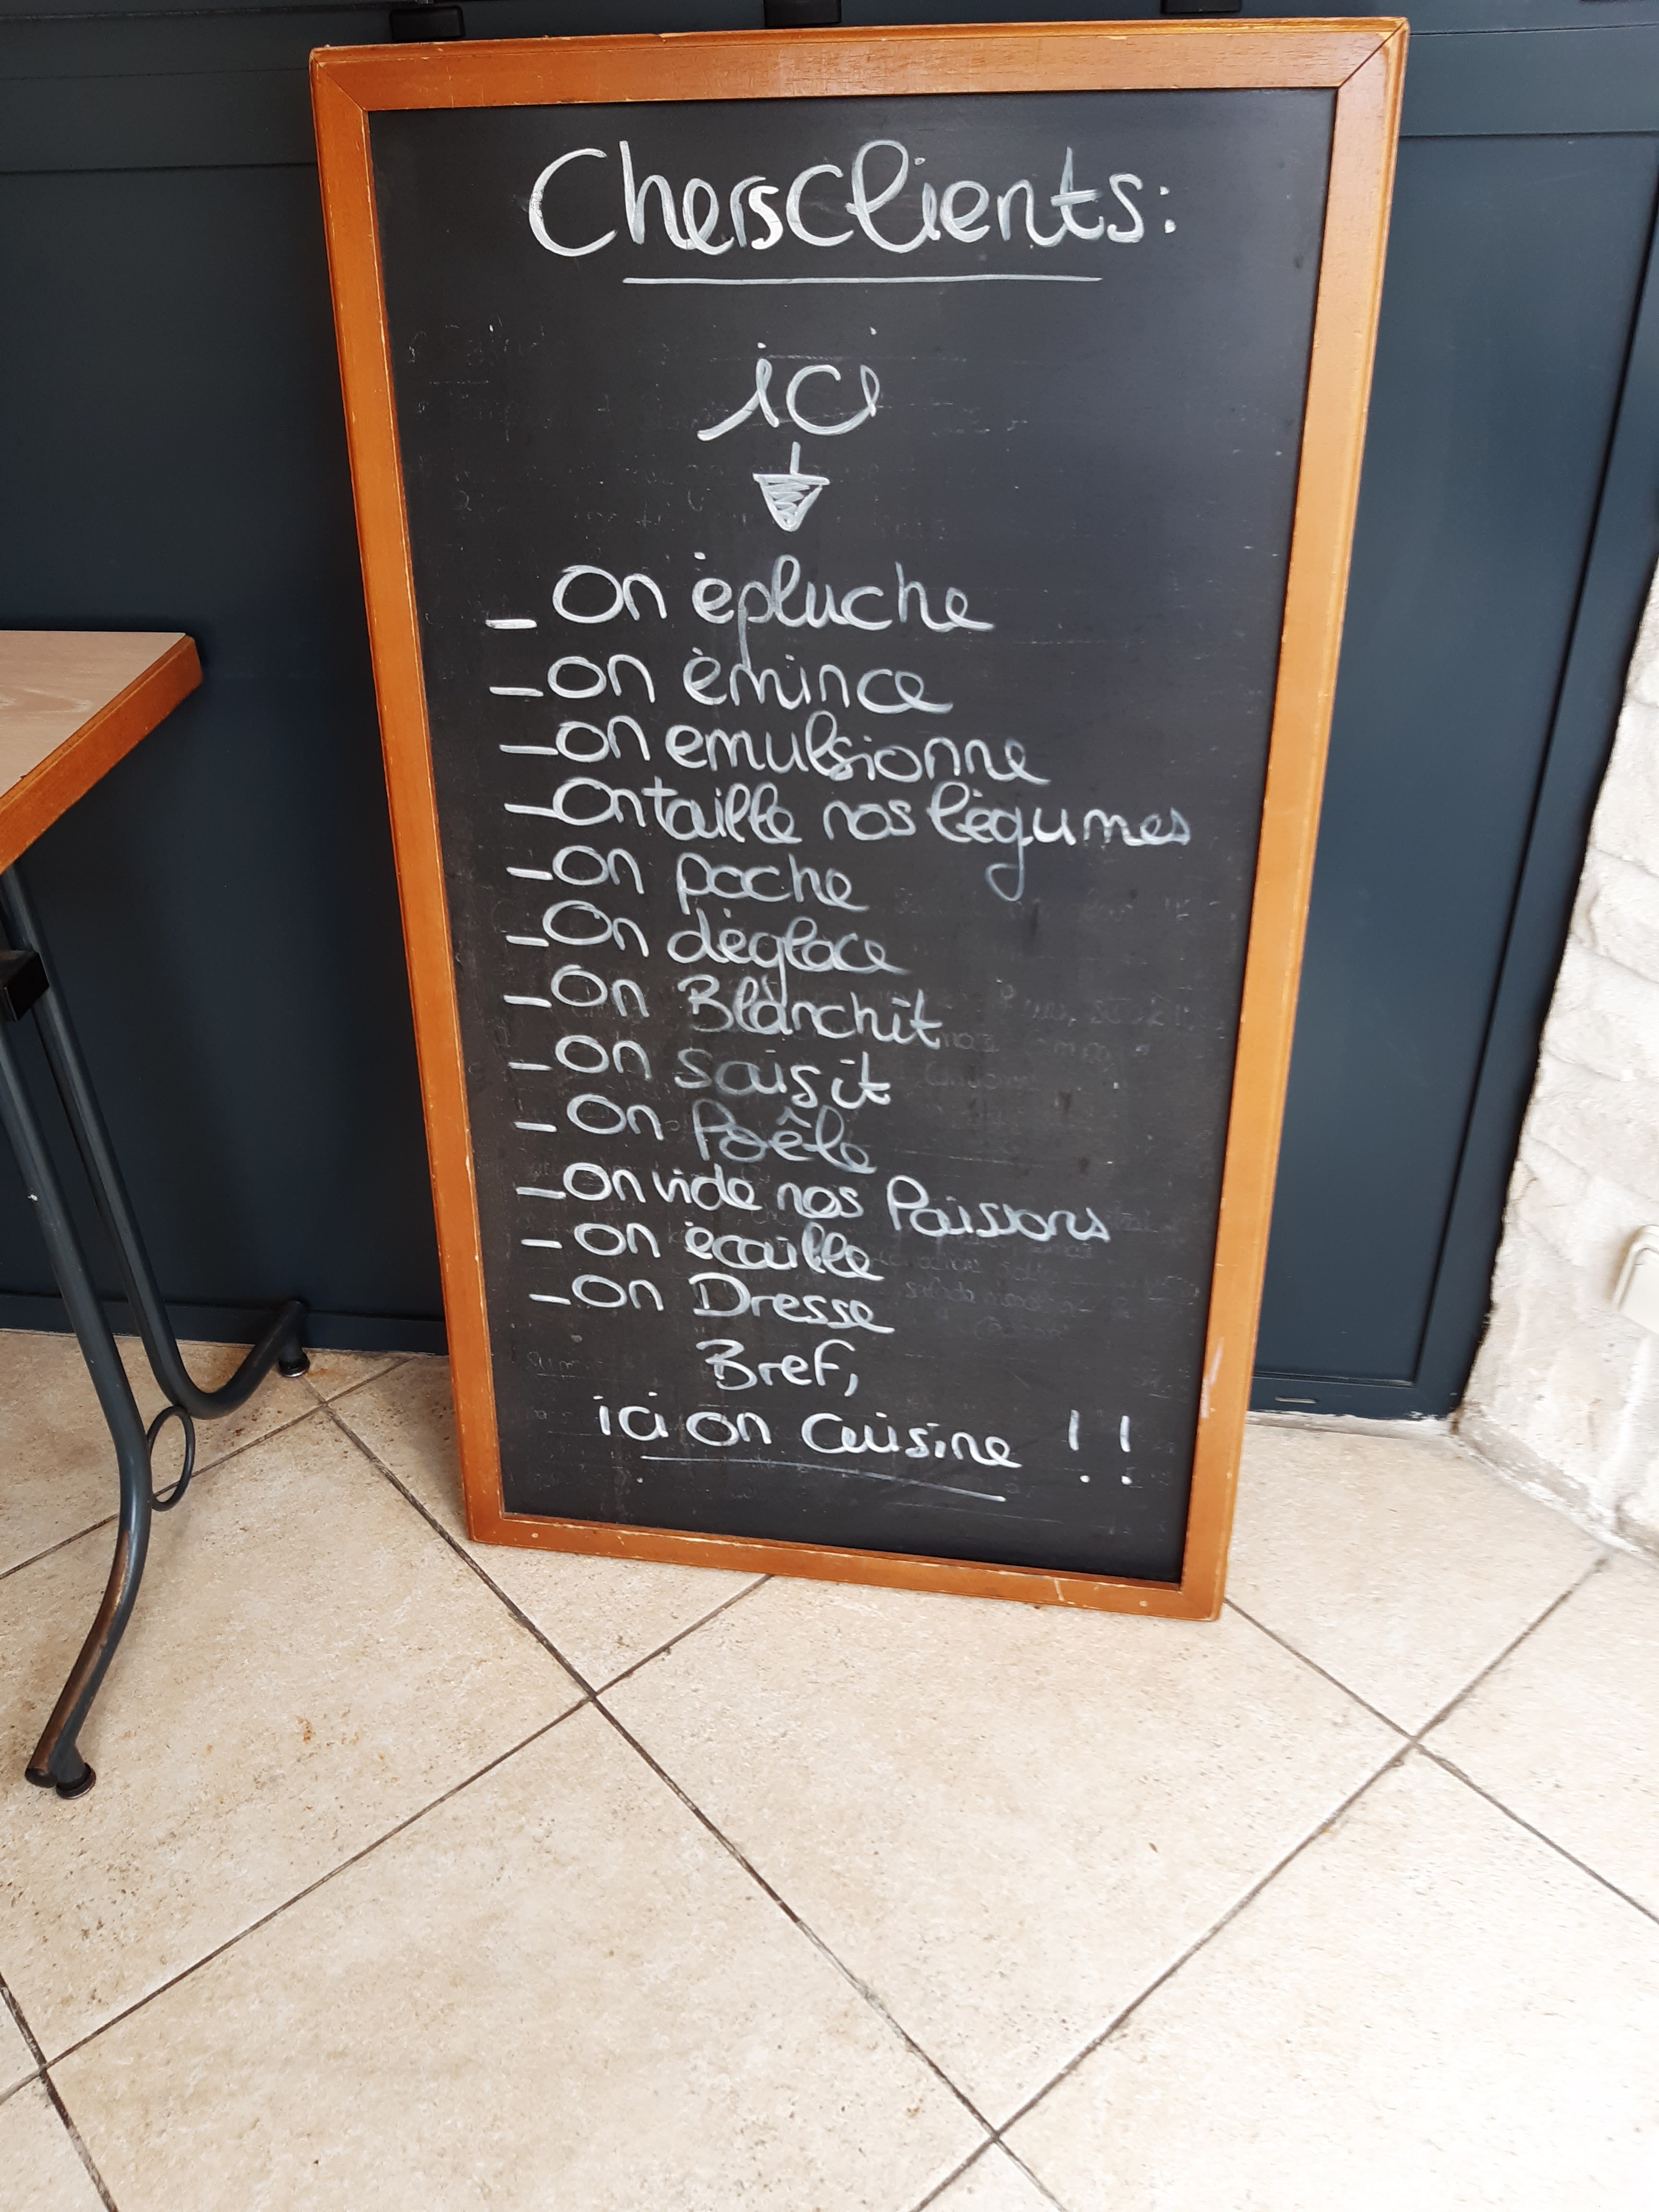 Chers Clients:
ici
_ On épluche
_ on émince
_ on emulsionne
_ On taille nos légumes
_ on poche
_ On déglace
_ On Blanchit
_ on saisit
_ on Poêle
_ on vide nos Poissons
_ on écaille
_ on Dresse
Bref,
ici on cuisine !!